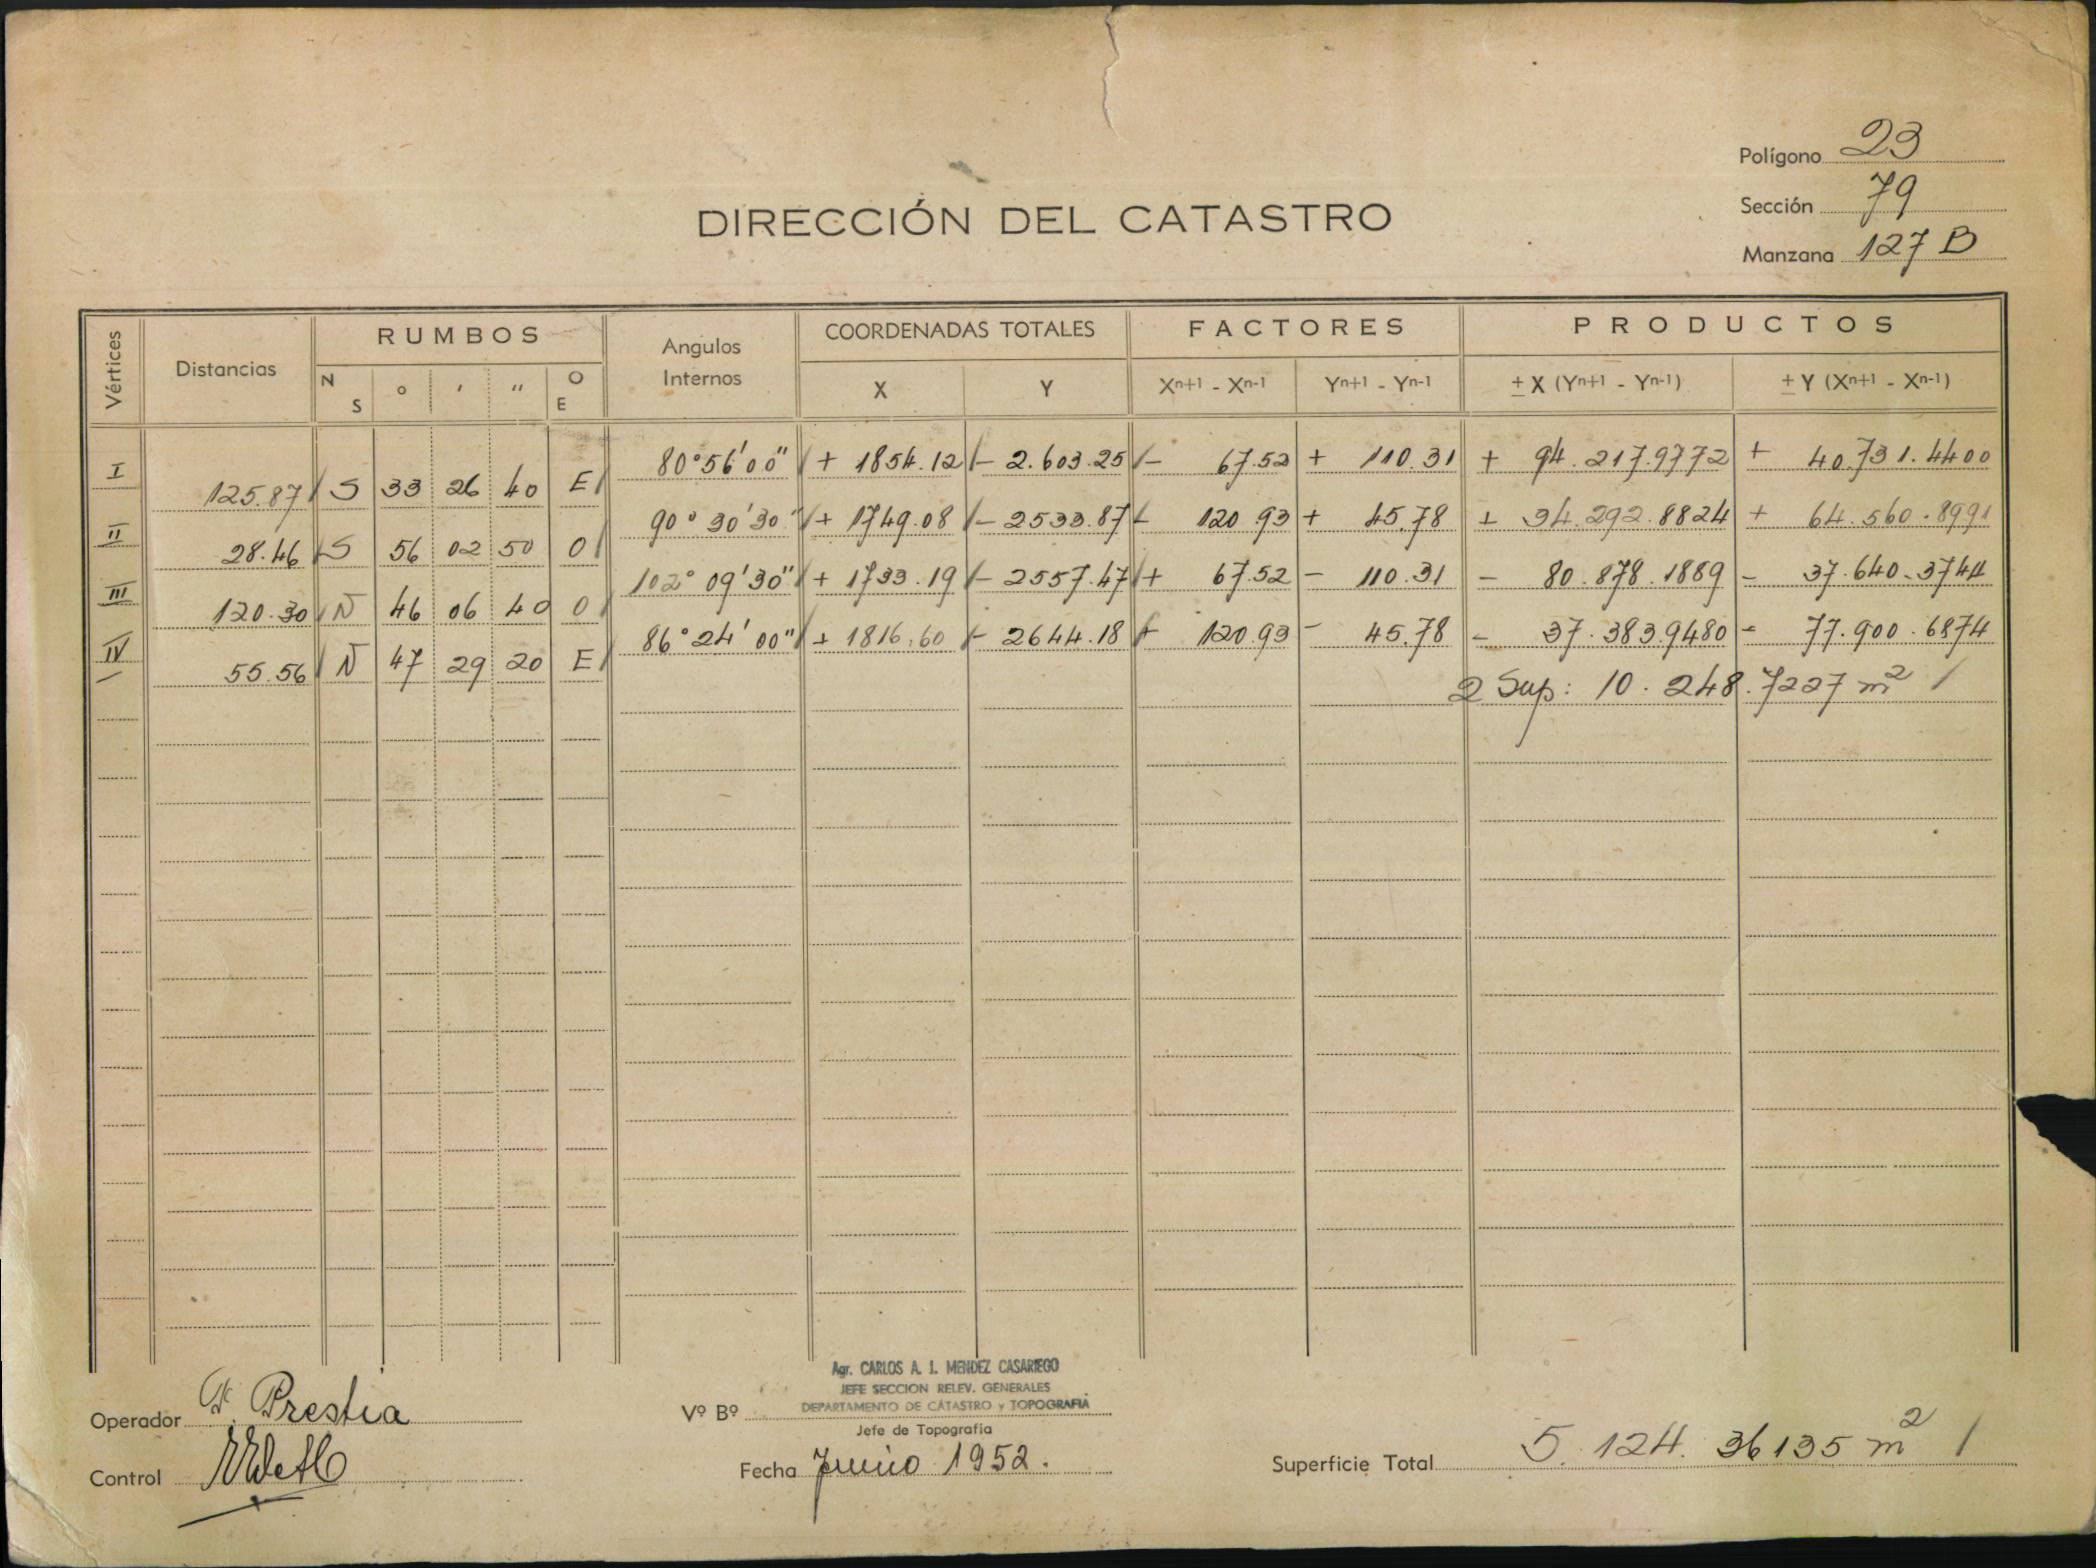 Polígono 23
Sección 79
Manzana 127 B
DIRECCIÓN DEL CATASTRO
Vértices Distancias RUMBOS Angulos Internos COORDENADAS TOTALES FACTORES PRODUCTOS
N S ° ' " O E X Y Xn+1 - Xn-1 Yn+1 - Yn-1 ± X (Yn+1 - Yn-1) ± Y (Xn+1 - Xn-1)
I 80°56'00" + 1854.12 - 2.603.25 - 67.52 + 110.31 + 94.217.9772 + 40.731.4400
125.87 S 33 26 40 E
II 90°30'30" + 1749.08 - 2533.87 - 120.93 + 45.78 + 34.292.8824 + 64.560.8991
28.46 S 56 02 50 O
III 102°09'30" + 1733.19 - 2557.47 + 67.52 - 110.31 - 80.878.1889 - 37.640.3744
120.30 N 46 06 40 O
IV 86°24'00" + 1816.60 - 2644.18 + 120.93 - 45.78 - 37.383.9480 - 77.900.6874
55.56 N 47 29 20 E
2 Sup: 10.248.7227 m2
Agr. CARLOS A. I. MENDEZ CASARIEGO
JEFE SECCION RELEV. GENERALES
DEPARTAMENTO DE CATASTRO y TOPOGRAFIA
Operador Prestia
Vº Bº
Jefe de Topografía
Control
Fecha Junio 1952.
Superficie Total 5.124.36135 m2